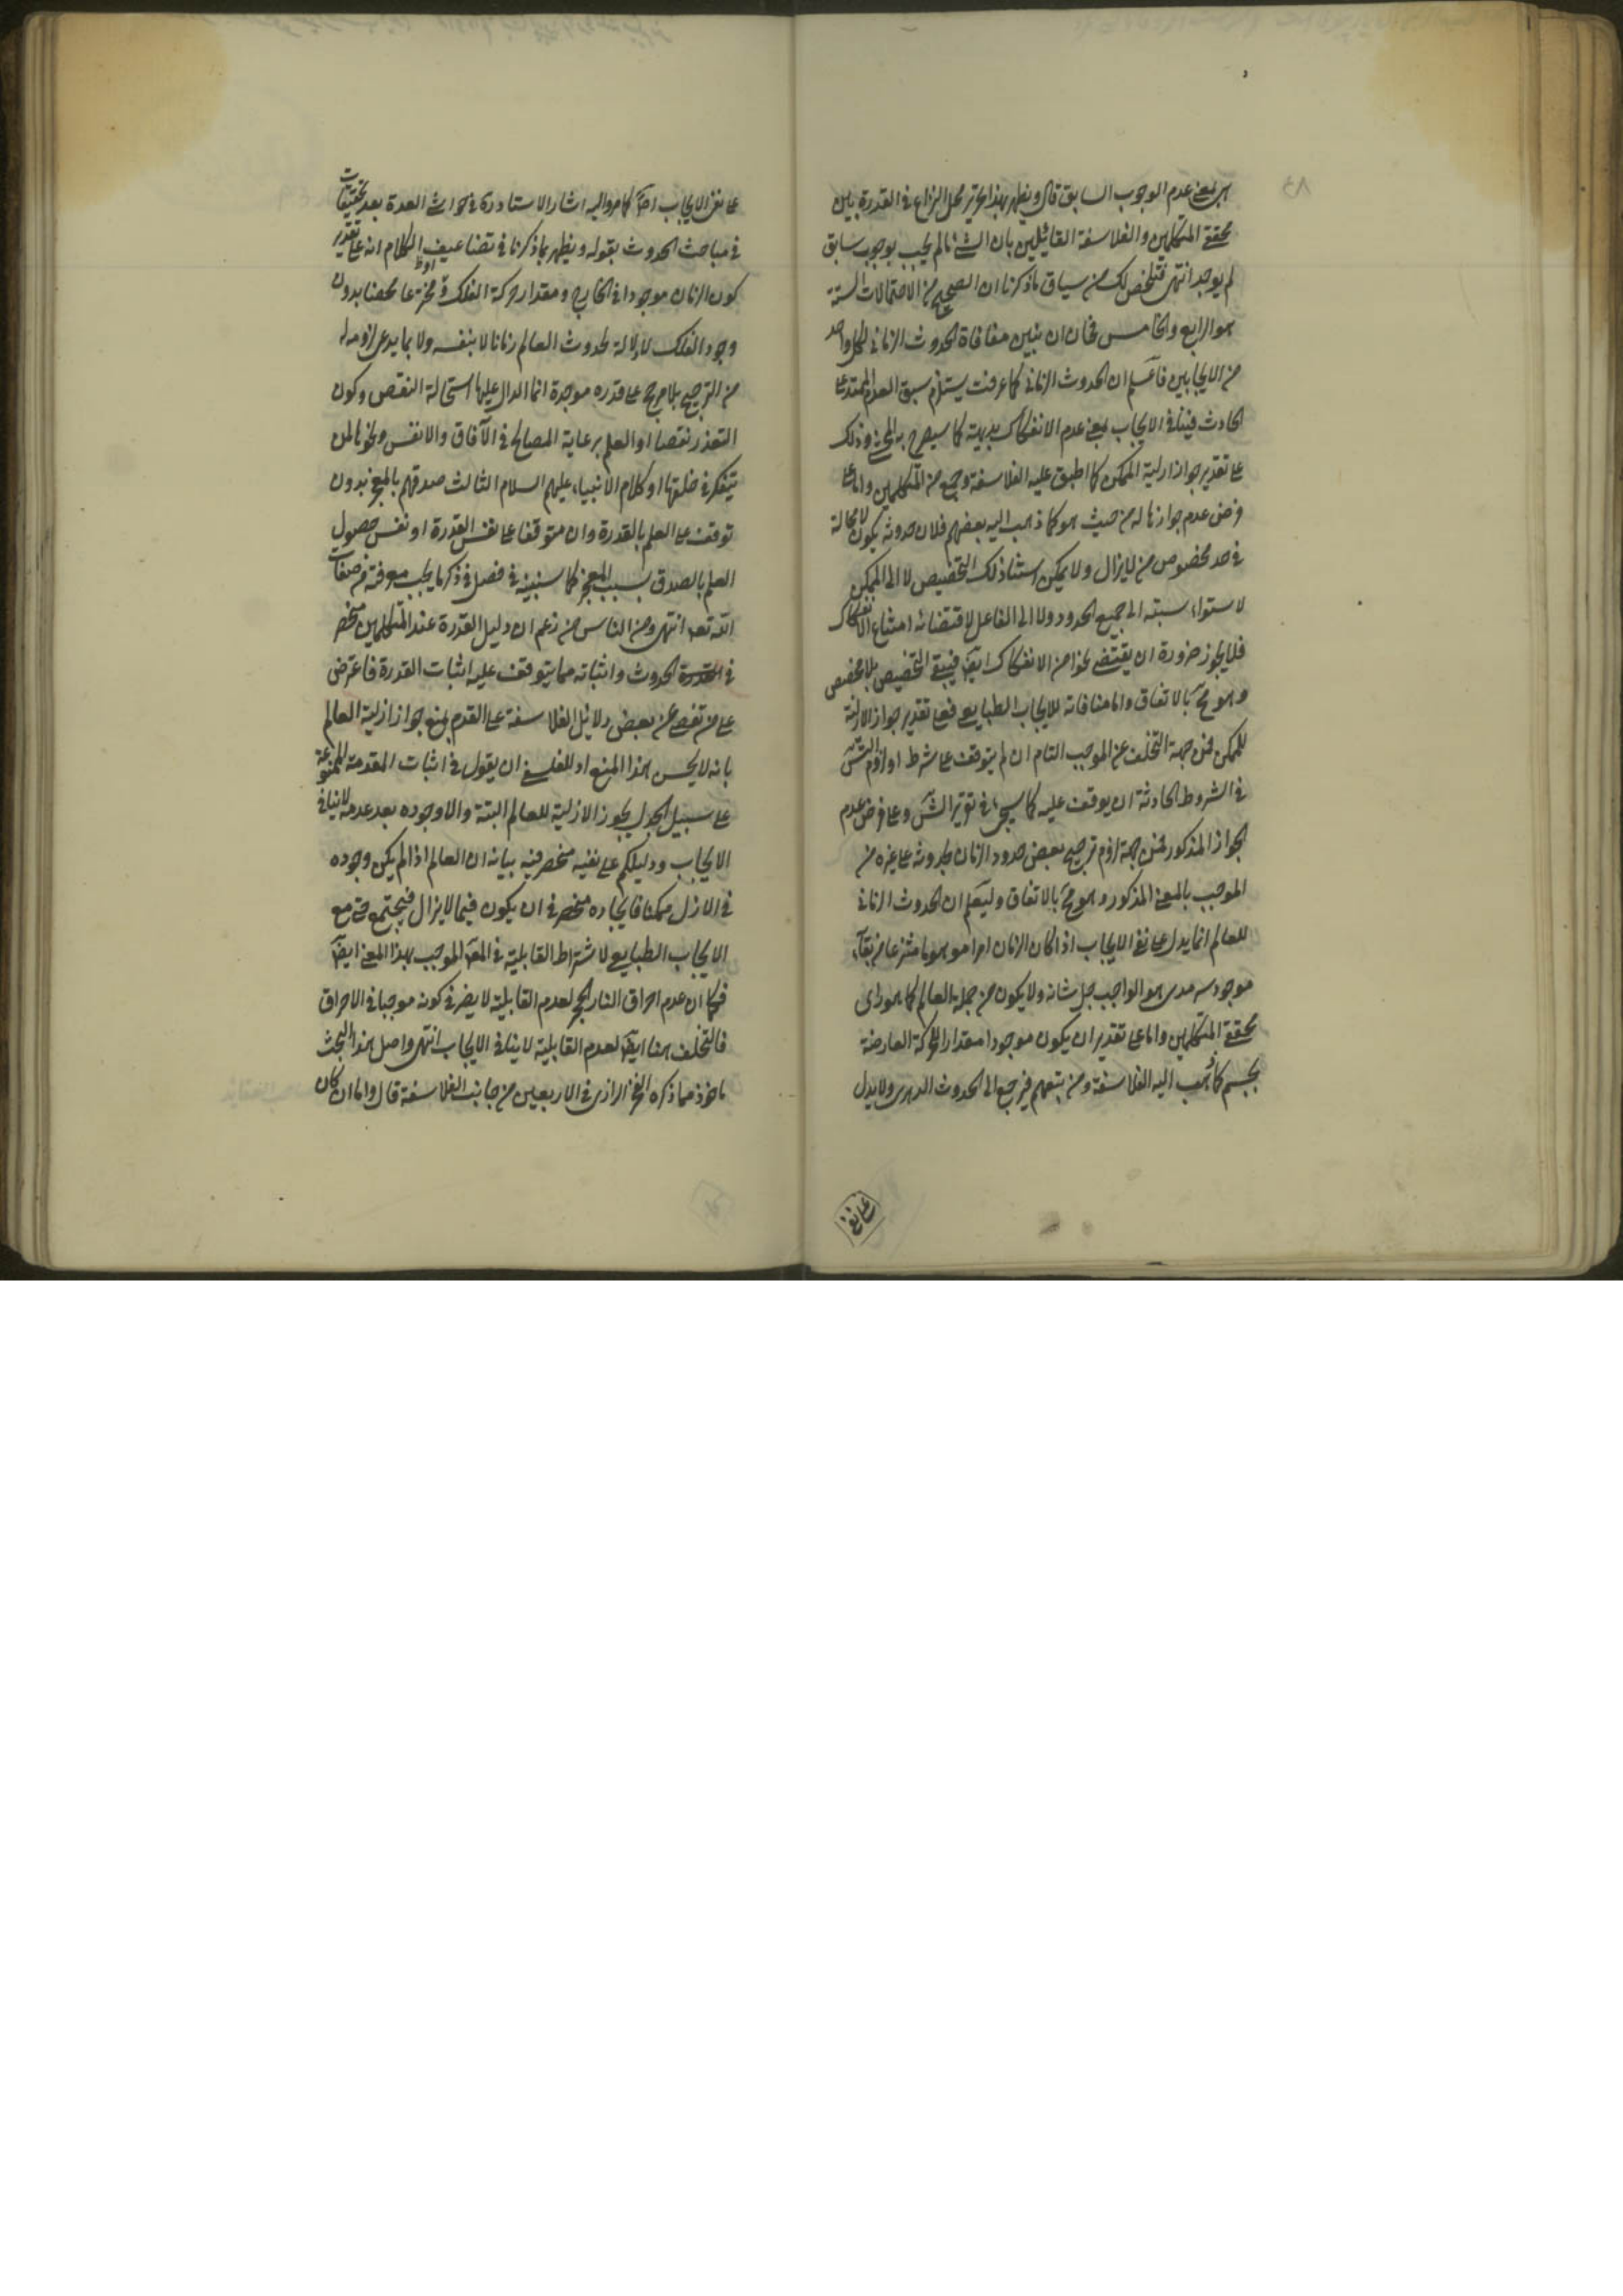 بمعنى عدم الوجوب السابق قال ويظهر بهذا تحرير محل النزاع في القدرة بين
محققى المتكلمين والفلاسفة القائلين بان الشئ ما لم يجب بوجوب سابق
لم يوجد انتهى فتلخص لك من سياق ما ذكرنا ان الصحيح من الاحتمالات الستة
هو الرابع والخامس فحان ان نبين منافاة الحدوث الزمانى لكل واحد
من الايجابين فاعلم ان الحدوث الزمانى كما عرفت يستلزم سبق العدم الممتد على
الحادث فينافي الايجاب بمعنى عدم الانفكاك بديهة كما سيصرح به المحشى وذلك
على تقدير جواز ازلية الممكن كما اطبق عليه الفلاسفة وجمع من المتكلمين واما على
فرض عدم جوازها له من حيث هو كما ذهب اليه بعضهم فلان حدوثه يكون لا محالة
في حد مخصوص من لا يزال ولا يمكن استناد ذلك التخصيص لا الى الممكن
لاستواء نسبته الى جميع الحدود ولا الى الفاعل لاقتضائه امتناع الانفكاك
فلا يجوز ضرورة ان يقتضى نحوا من الانفكاك ايضا فيبقى التخصيص بلا مخصص
وهو مح بالاتفاق واما منافاته للايجاب الطبايعى فعلى تقدير جواز الازلية
للممكن فمن جهة التخلف عن الموجب التام ان لم يتوقف على شرط او لزوم التس
في الشروط الحادثة ان يوقف عليه كما سيجئ في تقرير الش وعلى فرض عدم
الجواز المذكور فمن جهة لزوم ترجيح بعض حدود الزمان بحدوثه على غيره من
الموجب بالمعنى المذكور وهو مح بالاتفاق وليعلم ان الحدوث الزمانى
للعالم انما يدل على نفى الايجاب اذا كان الزمان امرا موهوما منتزعا من بقاء
موجود سرمدى هو الواجب جل شانه ولا يكون من جملة العالم كما هو راى
محققى المتكلمين واما على تقدير ان يكون موجودا مقدار الحركة العارضة
بجسم كما ذهب اليه الفلاسفة ومن يتبعهم فيرجع الى الحدوث الدهرى ولا يدل
على نفى
على نفى الايجاب اصلا كما مر واليه اشار الاستاد ره في حواشى العدة بعد تحقيقات
في مباحث الحدوث بقوله ويظهر بما ذكرنا في تضاعيف الكلام انه على تقدير
كون الزمان موجودا في الخارج ومقدار حركة الفلك
وجود الفلك لا دلالة لحدوث العالم زمانا لا بنفسه ولا بما يدعى لزومه له
من الترجيح بلا مرجح على قدرة موجده انما الدال عليها استحالة النقص وكون
التعذر نقصا او العلم برعاية المصالح في الآفاق والانفس ونحوها لمن
يتفكر في خلقها او كلام الانبياء عليهم السلام الثالث صدقهم بالمعجز بدون
توقف على العلم بالقدرة وان متوقفا على نفس القدرة او نفس حصول
العلم بالصدق بسبب المعجز كما سنبينه في فصل في ذكر ما يجب معرفته من صفات
الله تعه انتهى ومن الناس من زعم ان دليل القدرة عند المتكلمين منحصر
في الحدوث واثباته مما يتوقف عليه اثبات القدرة فاعترض
على من تفصى عن بعض دلائل الفلاسفة على القدم بمنع جواز ازلية العالم
بانه لا يحسن هذا المنع اذ للفلسفى ان يقول في اثبات المقدمة الممنوعة
على سبيل الجدل يجوز الازلية للعالم البتة والا وجوده بعد عدمه لا ينافى
الايجاب ودليلكم على نفيه منحصر فيه بيانه ان العالم اذا لم يكن وجوده
في الازل ممكنا فايجاده منحصر في ان يكون فيما لا يزال فيجتمع ح مع
الايجاب الطبايعى لاشتراط القابلية في الموجب بهذا المعنى ايضا
فكما ان عدم احراق النار الحجر لعدم القابلية لا يضر في كونه موجبا في الاحراق
فالتخلف هنا ايضا لعدم القابلية لا ينافى الايجاب انتهى واصل هذا البحث
ماخوذ مما ذكره الفخر الرازى في الاربعين من جانب الفلاسفة قال واما ان كان